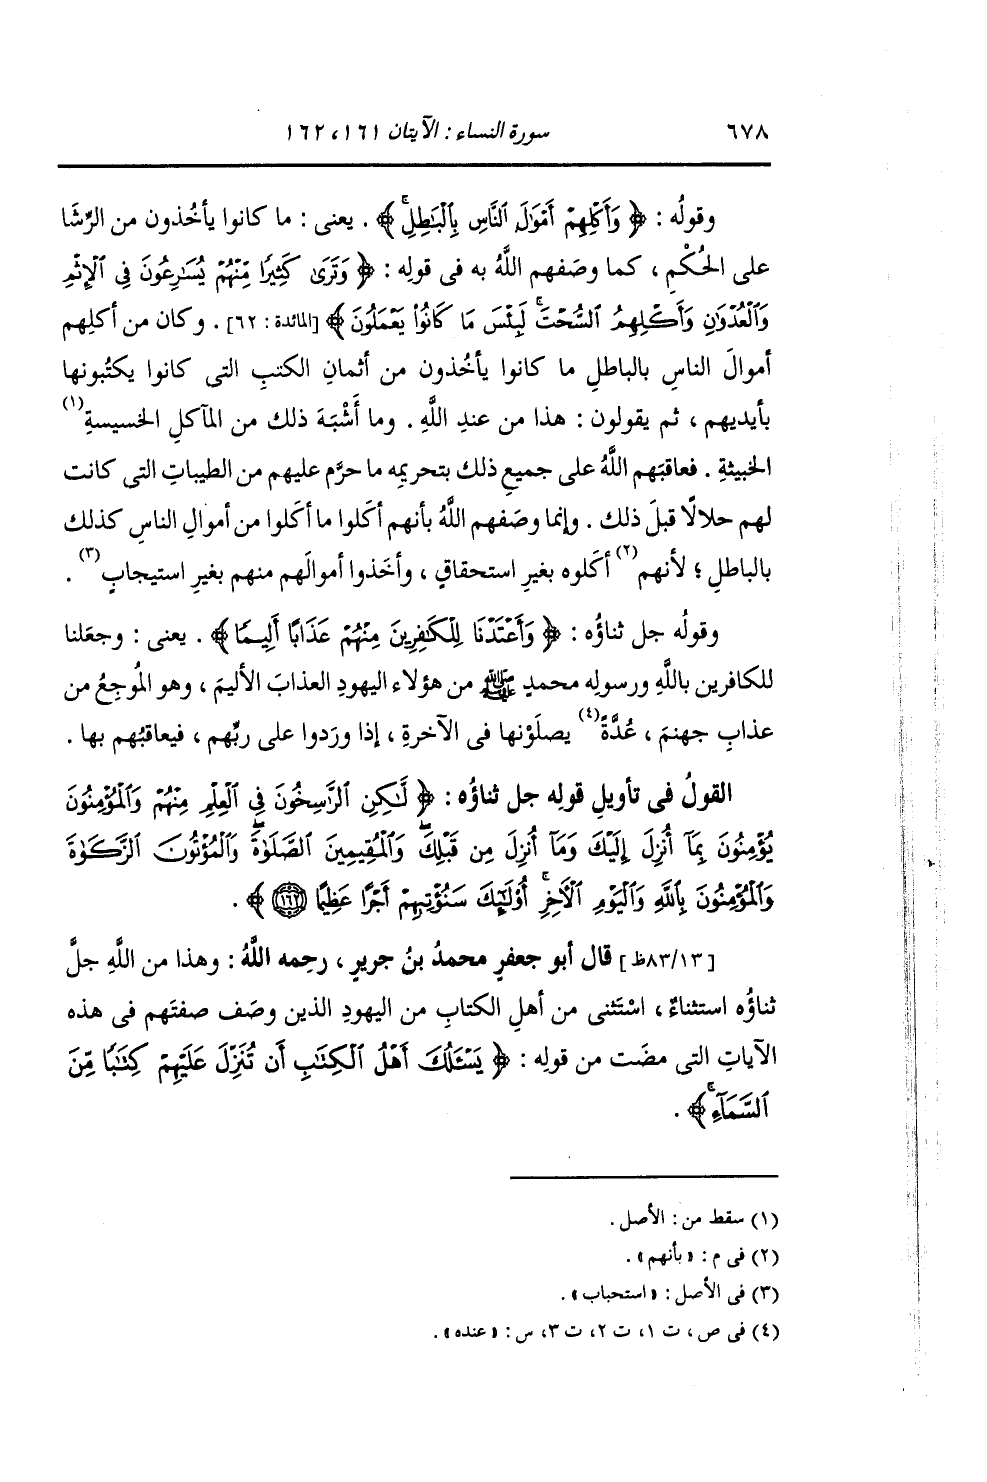 ٦٧٨ سورة النساء : الآيتان ١٦١، ١٦٢
وقولُه : ﴿ وَأَكْلِهِمْ أَمْوَٰلَ ٱلنَّاسِ بِٱلْبَٰطِلِۚ ﴾ . يعنى : ما كانوا يأخُذون من الرِّشَا
على الحُكْمِ ، كما وصَفهم اللَّهُ به فى قوله : ﴿ وَتَرَىٰ كَثِيرًا مِّنْهُمْ يُسَٰرِعُونَ فِى ٱلْإِثْمِ
وَٱلْعُدْوَٰنِ وَأَكْلِهِمُ ٱلسُّحْتَۚ لَبِئْسَ مَا كَانُوا۟ يَعْمَلُونَ ﴾ [المائدة : ٦٢] . وكان من أكلِهم
أموالَ الناسِ بالباطلِ ما كانوا يأخُذون من أثمانِ الكتبِ التى كانوا يكتُبونها
بأيديهم ، ثم يقولون : هذا من عندِ اللَّهِ . وما أَشْبَهَ ذلك من المآكلِ الخسيسةِ(١)
الخبيثةِ . فعاقبَهم اللَّهُ على جميعِ ذلك بتحريمِه ما حرَّم عليهم من الطيباتِ التى كانت
لهم حلالًا قبلَ ذلك . وإنما وصَفهم اللَّهُ بأنهم أكَلوا ما أكَلوا من أموالِ الناسِ كذلك
بالباطلِ ؛ لأنهم(٢) أكَلوه بغيرِ استحقاقٍ ، وأخَذوا أموالَهم منهم بغيرِ استيجابٍ(٣) .
وقولُه جل ثناؤُه : ﴿ وَأَعْتَدْنَا لِلْكَٰفِرِينَ مِنْهُمْ عَذَابًا أَلِيمًا ﴾ . يعنى : وجعَلنا
للكافرين باللَّهِ ورسولِه محمدٍ ﷺ من هؤلاء اليهودِ العذابَ الأليمَ ، وهو المُوجِعُ من
عذابِ جهنمَ ، عُدَّةً(٤) يصلَوْنها فى الآخرةِ ، إذا ورَدوا على ربِّهم ، فيعاقبُهم بها .
القولُ فى تأويلِ قولِه جل ثناؤُه : ﴿ لَّٰكِنِ ٱلرَّٰسِخُونَ فِى ٱلْعِلْمِ مِنْهُمْ وَٱلْمُؤْمِنُونَ
يُؤْمِنُونَ بِمَآ أُنزِلَ إِلَيْكَ وَمَآ أُنزِلَ مِن قَبْلِكَۖ وَٱلْمُقِيمِينَ ٱلصَّلَوٰةَۖ وَٱلْمُؤْتُونَ ٱلزَّكَوٰةَ
وَٱلْمُؤْمِنُونَ بِٱللَّهِ وَٱلْيَوْمِ ٱلْءَاخِرِۚ أُو۟لَٰٓئِكَ سَنُؤْتِيهِمْ أَجْرًا عَظِيمًا ١٦٢ ﴾ .
[ ١٣/ ٨٣ظ ] قال أبو جعفرٍ محمدُ بنُ جريرٍ ، رحِمه اللَّهُ : وهذا من اللَّهِ جلَّ
ثناؤُه استثناءٌ ، اسْتَثنى من أهلِ الكتابِ من اليهودِ الذين وصَف صفتَهم فى هذه
الآياتِ التى مضَت من قولِه : ﴿ يَسْـَٔلُكَ أَهْلُ ٱلْكِتَٰبِ أَن تُنَزِّلَ عَلَيْهِمْ كِتَٰبًا مِّنَ
ٱلسَّمَآءِۚ ﴾ .
(١) سقط من : الأصل .
(٢) فى م : « بأنهم » .
(٣) فى الأصل : « استحباب » .
(٤) فى ص ، ت ١، ت ٢، ت ٣، س : « عنده » .